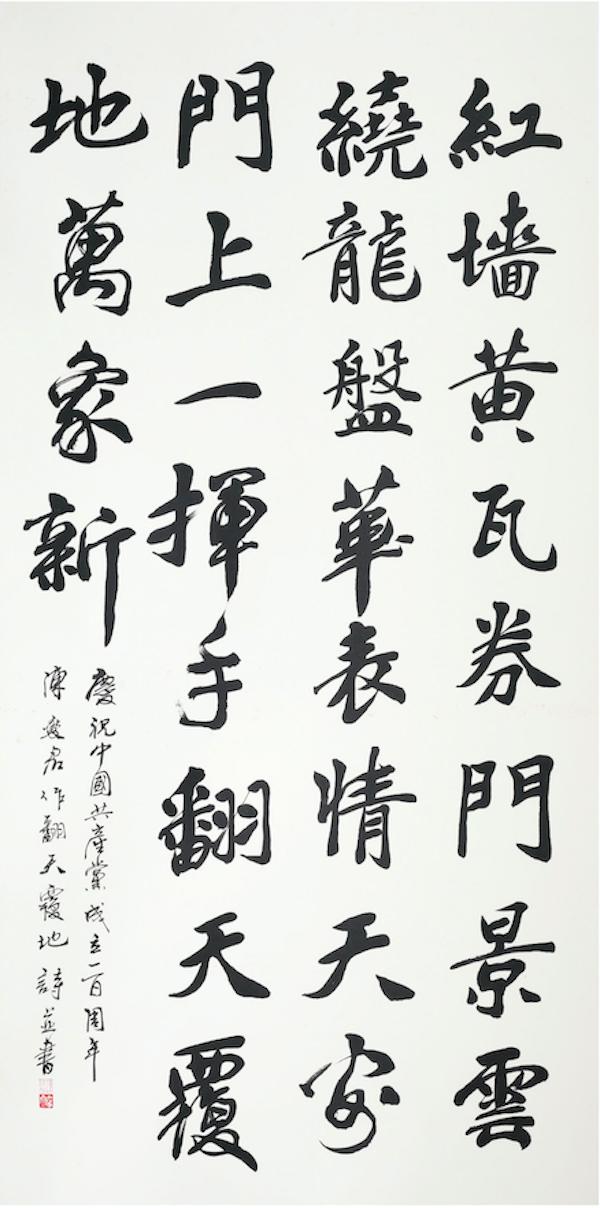 紅墻黃瓦券門景雲
繞龍盤華表情天安
門上一揮手翻天覆
地萬象新
慶祝中國共產黨成立一百周年
陳遠君作翻天覆地詩並書